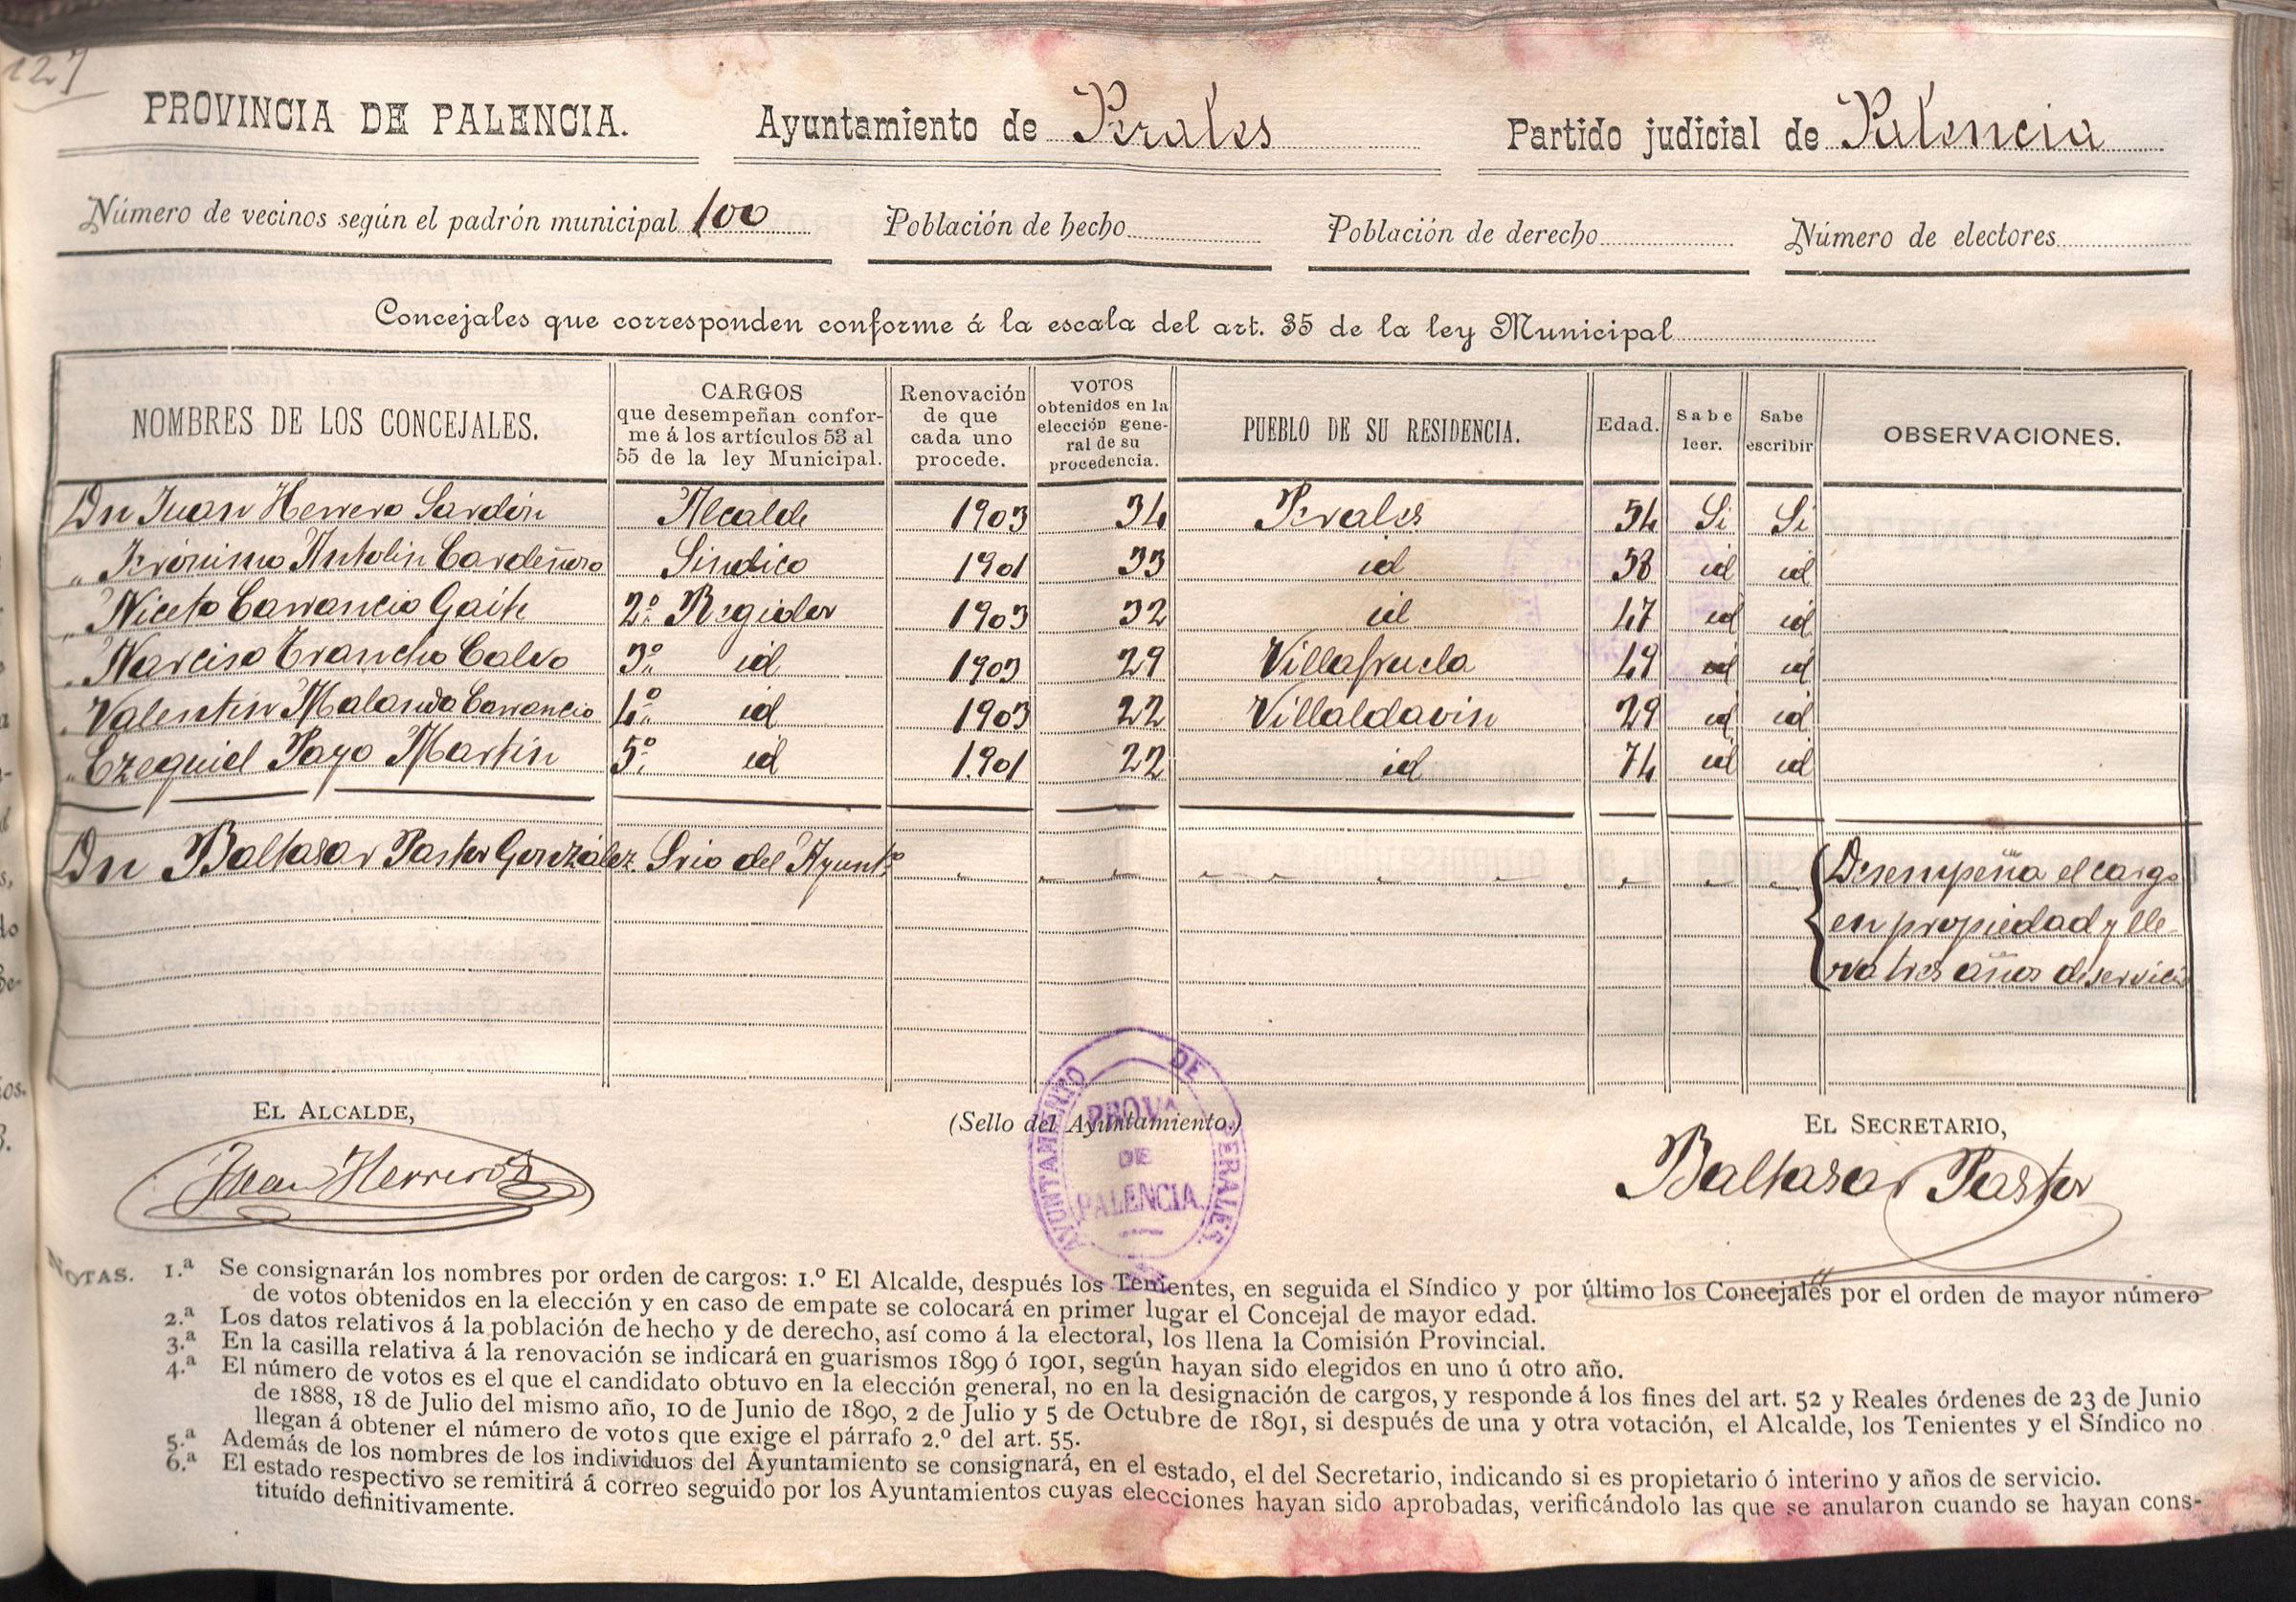 127
PROVINCIA DE PALENCIA. Ayuntamiento de Perales Partido judicial de Palencia
Número de vecinos según el padrón municipal 100 Población de hecho Población de derecho Número de electores
Concejales que corresponden conforme á la escala del art. 35 de la ley Municipal
NOMBRES DE LOS CONCEJALES. CARGOS que desempeñan confor- me á los artículos 53 al 55 de la ley Municipal. Renovación de que cada uno procede. VOTOS obtenidos en la elección gene- ral de su procedencia. PUEBLO DE SU RESIDENCIA. Edad. Sabe leer. Sabe escribir OBSERVACIONES.
Dn Juan Herrero Sardón Alcalde 1903 34 Perales 54 Si Si
" Jerónimo Antolin Cardeñoso Sindico 1901 33 id 58 id id
" Niceto Carrancio Gaite 2º Regidor 1903 32 id 47 id id
" Narciso Trancho Calvo 3º id 1903 29 Villafruela 49 id id
" Valentin Malanda Carrancio 4º id 1903 22 Villaldavin 29 id id
" Ezequiel Payo Martin 5º id 1901 22 id 74 id id
Dn Baltasar Pastor González Srio del Ayuntº Desempeña el cargo
en propiedad y lle-
va tres años de servicio
EL ALCALDE, (Sello del Ayuntamiento.) EL SECRETARIO,
Juan Herrero Baltasar Pastor
AYUNTAMIENTO DE PERALES
PROVª
DE
PALENCIA
NOTAS. 1.ª Se consignarán los nombres por orden de cargos: 1.º El Alcalde, después los Tenientes, en seguida el Síndico y por último los Concejales por el orden de mayor número
de votos obtenidos en la elección y en caso de empate se colocará en primer lugar el Concejal de mayor edad.
2.ª Los datos relativos á la población de hecho y de derecho, así como á la electoral, los llena la Comisión Provincial.
3.ª En la casilla relativa á la renovación se indicará en guarismos 1899 ó 1901, según hayan sido elegidos en uno ú otro año.
4.ª El número de votos es el que el candidato obtuvo en la elección general, no en la designación de cargos, y responde á los fines del art. 52 y Reales órdenes de 23 de Junio
de 1888, 18 de Julio del mismo año, 10 de Junio de 1890, 2 de Julio y 5 de Octubre de 1891, si después de una y otra votación, el Alcalde, los Tenientes y el Síndico no
llegan á obtener el número de votos que exige el párrafo 2.º del art. 55.
5.ª Además de los nombres de los individuos del Ayuntamiento se consignará, en el estado, el del Secretario, indicando si es propietario ó interino y años de servicio.
6.ª El estado respectivo se remitirá á correo seguido por los Ayuntamientos cuyas elecciones hayan sido aprobadas, verificándolo las que se anularon cuando se hayan cons-
tituído definitivamente.